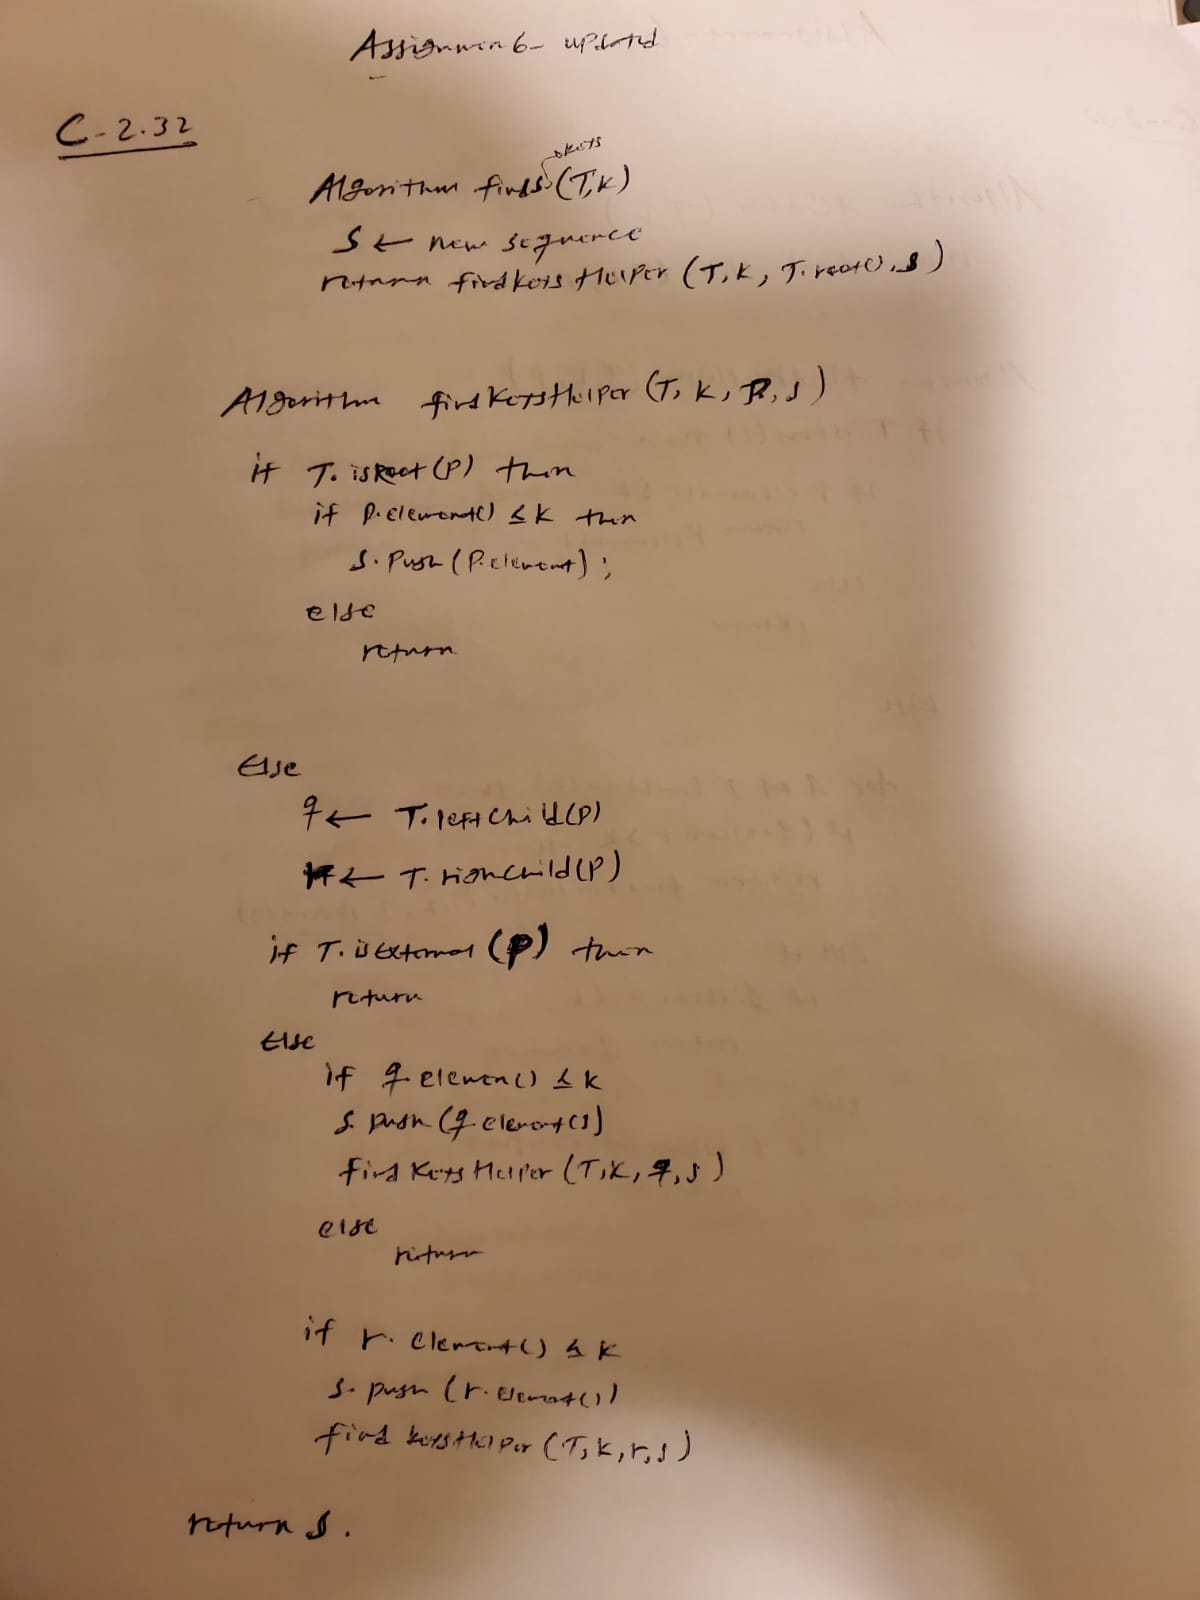 Assignmen 6- updated
C-2.32
Algorithm finds keys (T,k)
S ← new sequence
return findkeys Helper (T,k, T.root(),s)
Algorithm findKeysHelper (T, k, P, s)
if T. isRoot (p) then
if p.element() ≤ k then
s. Push (P.element) ;
else
return
Else
q ← T. leftChild(p)
r ← T. righChild(p)
if T. isExternal (p) then
return
Else
if q. elemen() ≤ k
s. push (q. element())
find Keys Helper (T,k, q, s)
else
return
if r. element() ≤ k
s. push (r. element())
find keysHelper (T, k, r, s)
return s.